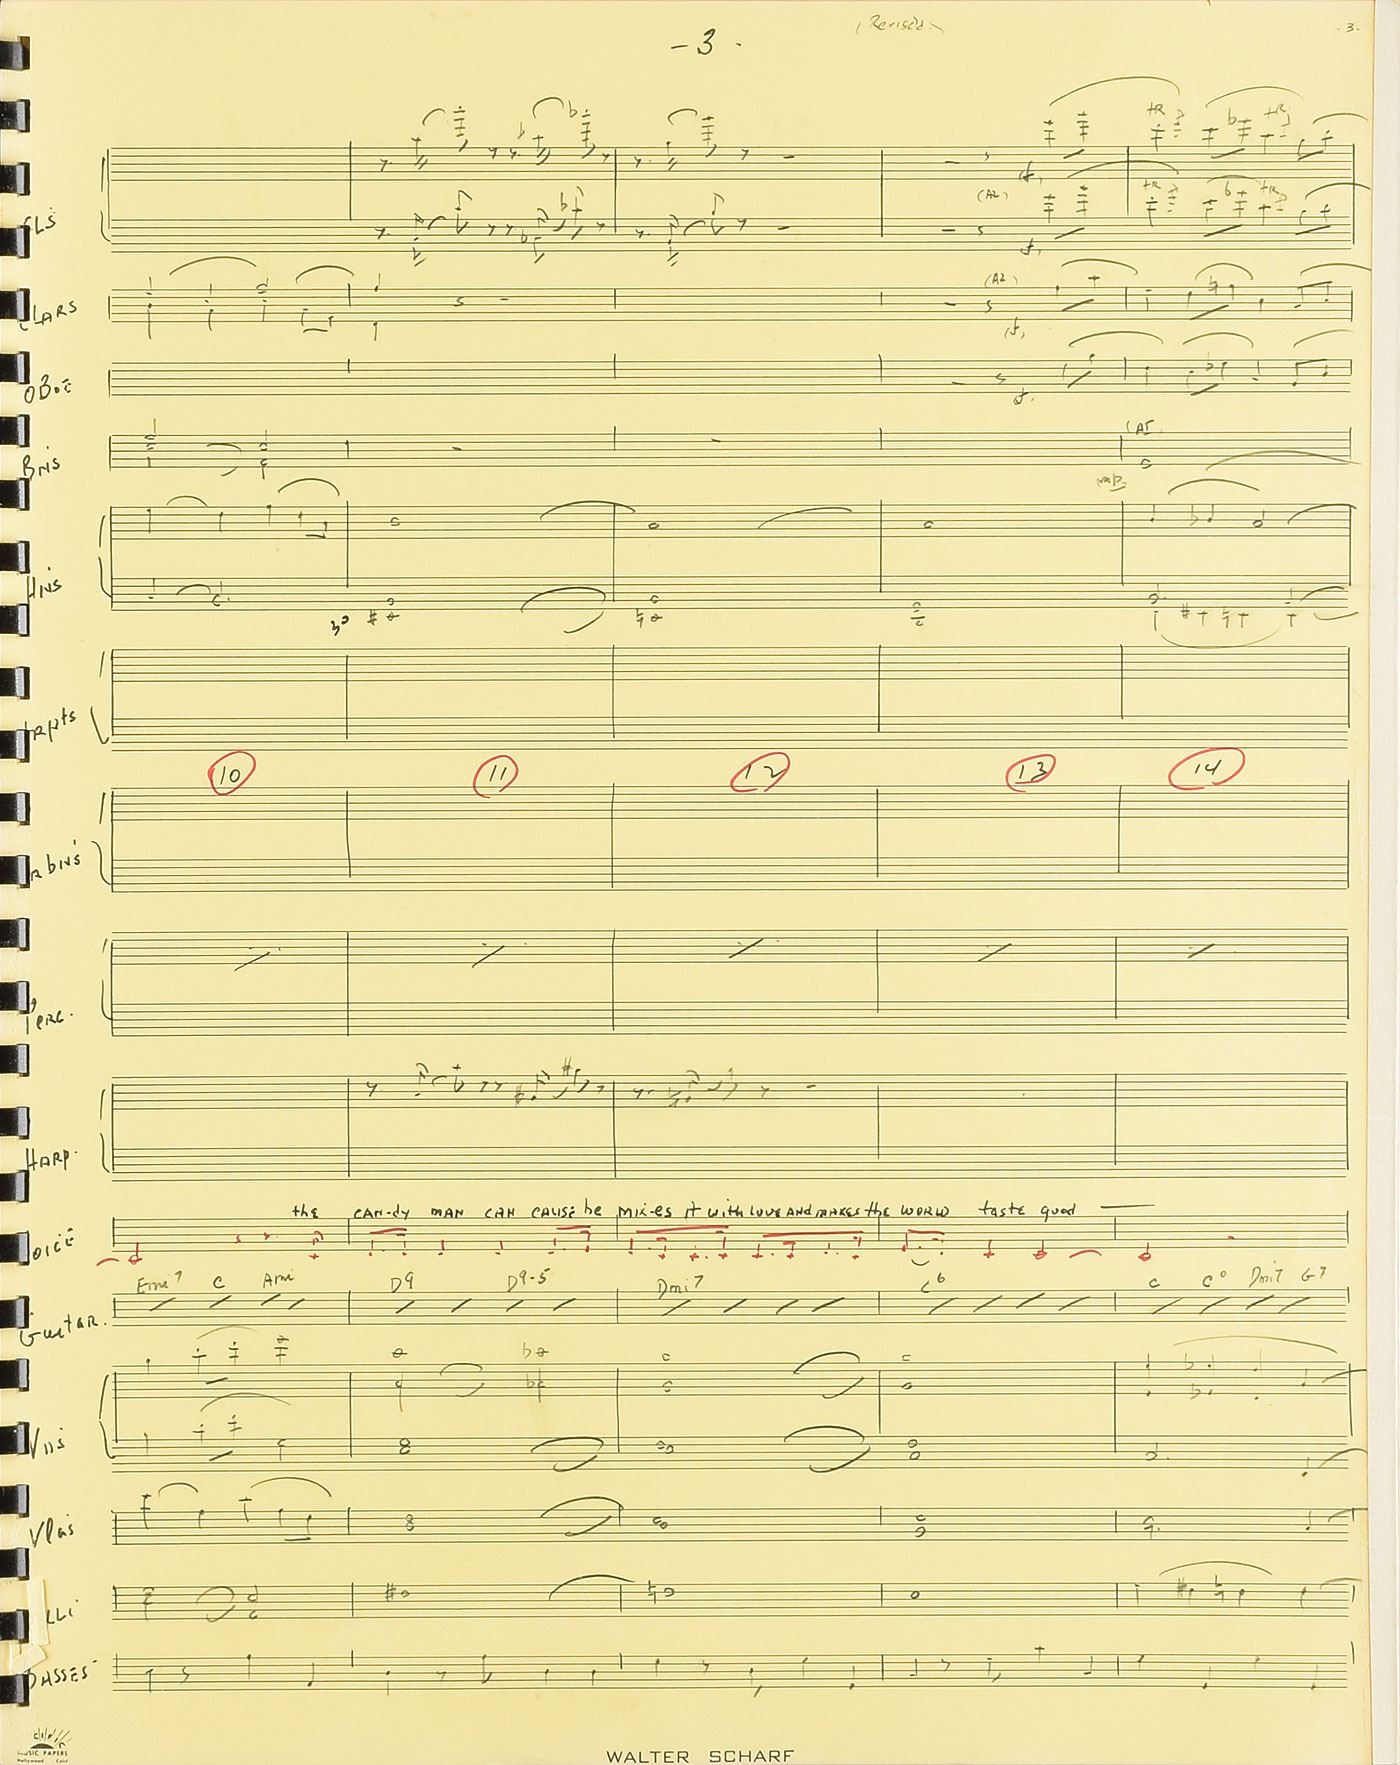 (Revised)
- 3 -
- 3 -
tR tR
f
FLS
(A2)
tR tR
f
CLARS
(A2)
f
OBOE
f
BNS
(A1)
mp
HNS
TRPTS
10 11 12 13 14
RBNS
PERC.
HARP.
the CAN-dy MAN CAN CAUSE he MIX-ES it with LOVE AND MAKES the WORLD taste good
VOICE
Emi7 C Ami D9 D9-5 Dmi7 C6 C C° Dmi7 G7
Guitar.
Vlns
Vlas
CELLI
BASSES
MUSIC PAPERS
Hollywood Calif
WALTER SCHARF